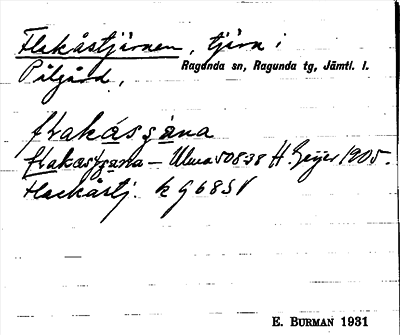 Flakåstjärnen, tjärn i
Ragunda sn, Ragunda tg, Jämtl. l.
Pålgård,
flakásɟàna
flakastɟana – Ulma 50838 H. Geijer 1905.
Flackåstj. k G 68 SV
E. BURMAN 1931